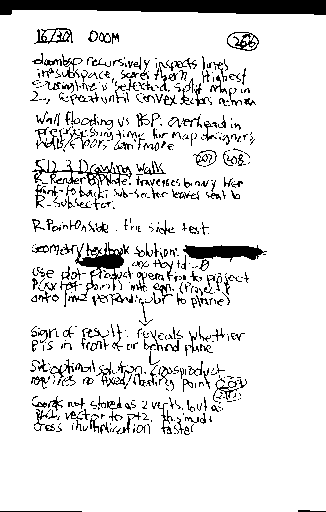 16/30 DOOM 206
doombsp recursively inspects lines
in subspace, scores them, highest
scoring line is selected. Split map in
2, repeat until convex sectors remain
Wall flooding vs BSP. overhead in
preprocessing time for map designers
207 208
5.2.3 Drawing Walls
R_RenderBSPNode: traverses binary tree
front to back; sub-sector leaves sent to
R_Subsector.
R_PointOnSide: the side test
Geometry textbook solution:
ax+by+d=0
Use dot product operation to project
onto line perpendicular to plane)
Sign of result: reveals whether
P is in front of or behind plane
Suboptimal solution. Cross product
requires no fixed/floating point 209
Coords not stored as 2 verts, but as
vector to pt2. this made
cross multiplication faster